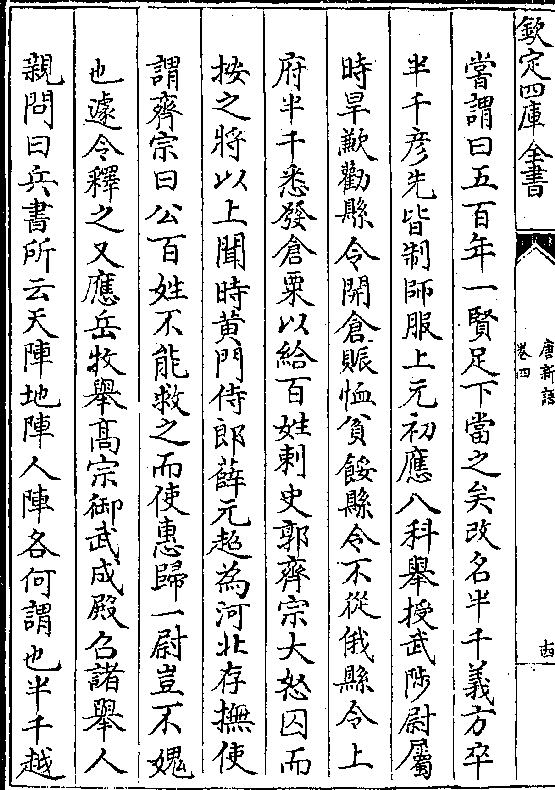 欽定四庫全書
唐新語
卷四
古
嘗謂曰五百年一賢足下當之矣改名半千義方卒
半千彦先皆制師服上元初應八科舉授武陟尉屬
時旱歉勸縣令開倉賑恤貧餒縣令不從俄縣令上
府半千悉發倉粟以給百姓刺史郭齊宗大怒囚而
按之將以上聞時黄門侍郎薛元超為河北存撫使
謂齊宗曰公百姓不能救之而使惠歸一尉豈不媿
也遽令釋之又應岳牧舉髙宗御武成殿召諸舉人
親問曰兵書所云天陣地陣人陣各何謂也半千越